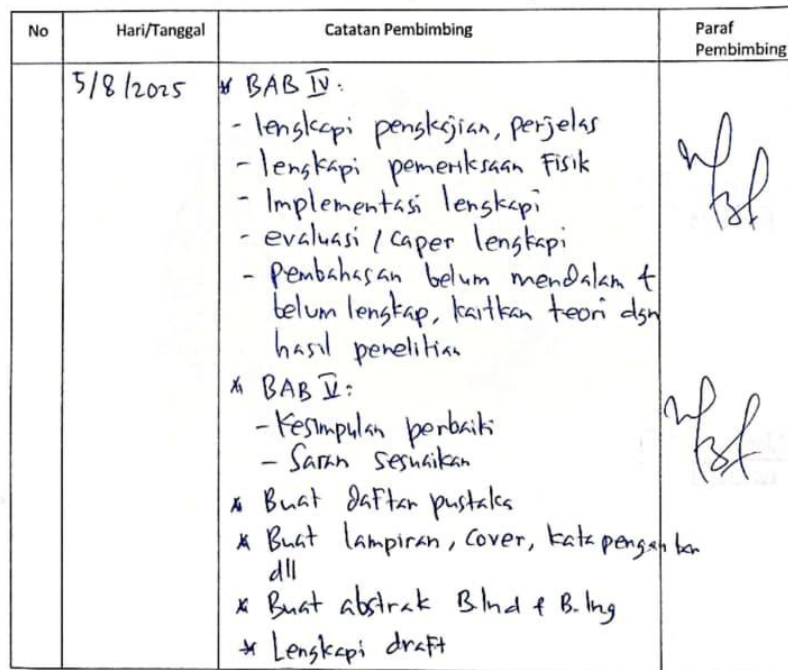 No Hari/Tanggal Catatan Pembimbing Paraf
Pembimbing
5/8/2025 * BAB IV:
- lengkapi pengkajian, perjelas
- lengkapi pemeriksaan Fisik
- Implementasi lengkapi
- evaluasi / caper lengkapi
- Pembahasan belum mendalam +
belum lengkap, kaitkan teori dgn
hasil penelitian
* BAB V:
- Kesimpulan perbaiki
- Saran sesuaikan
* Buat daftar pustaka
* Buat lampiran, cover, kata pengantar
dll
* Buat abstrak B.Ind + B.Ing
* Lengkapi draft